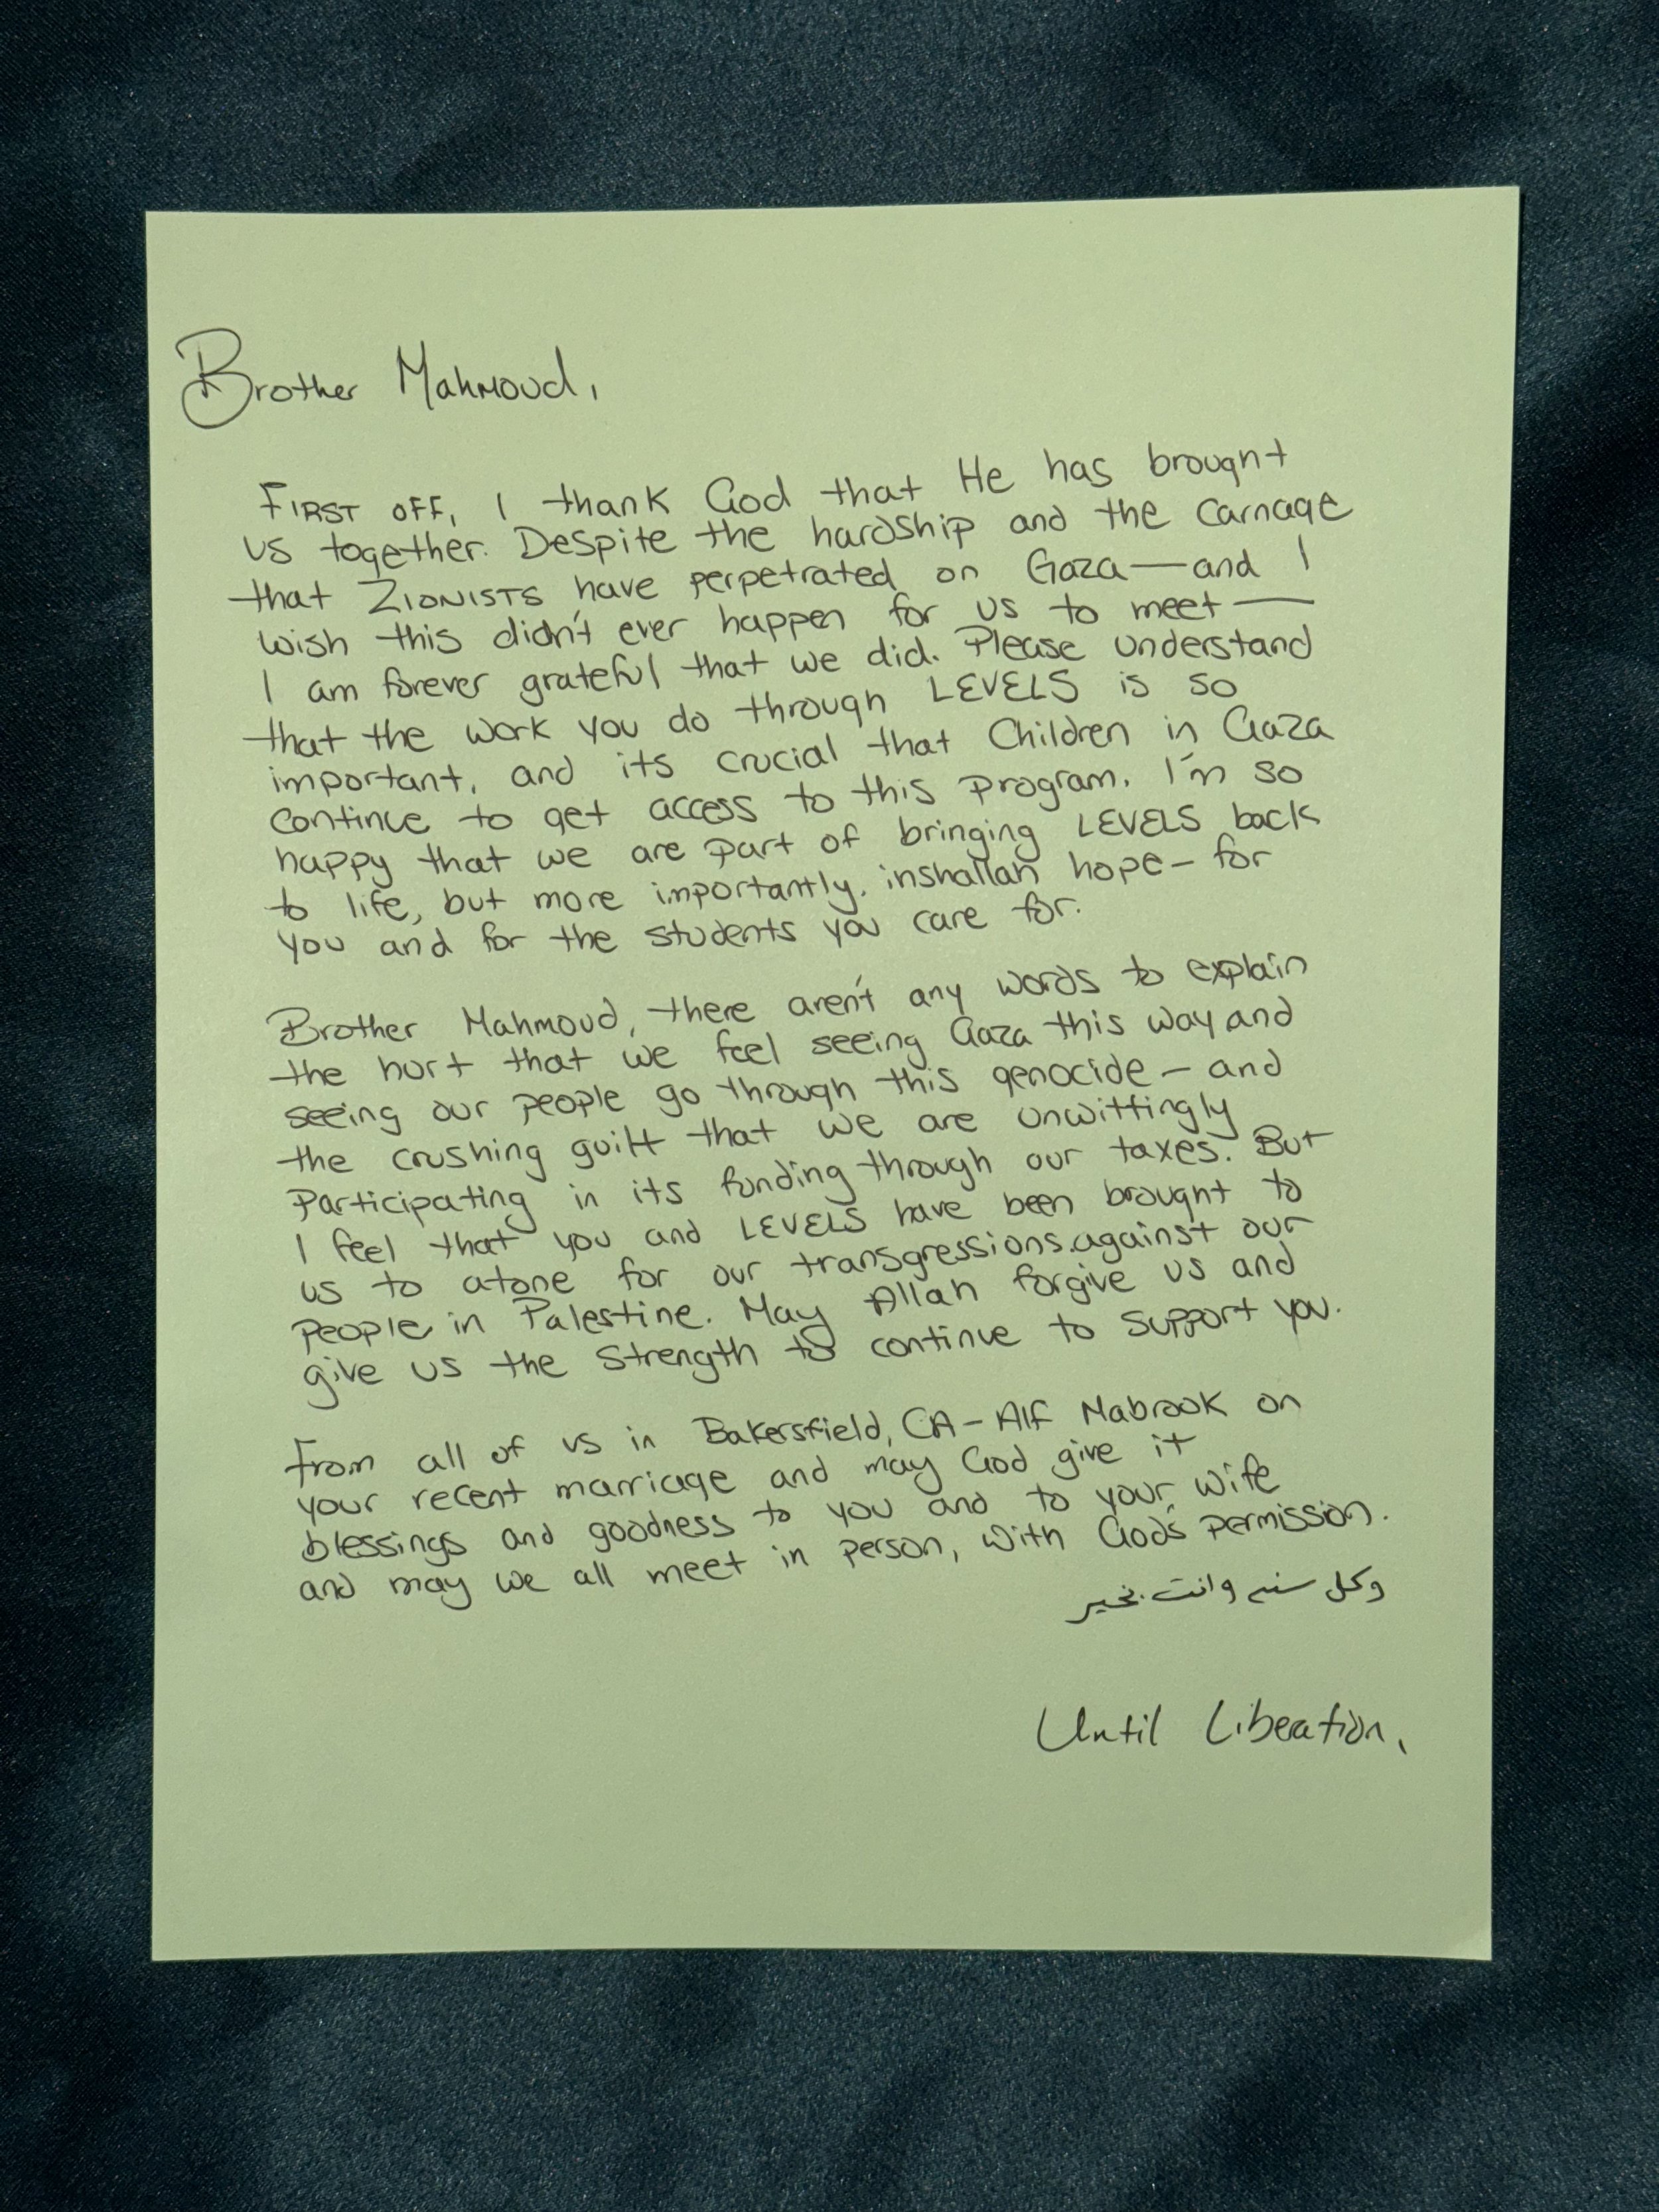 Brother Mahmoud,
FIRST OFF, I thank God that He has brought
us together. Despite the hardship and the carnage
that ZIONISTS have perpetrated on Gaza—and I
wish this didn't ever happen for us to meet—
I am forever grateful that we did. Please understand
that the work you do through LEVELS is so
important, and its crucial that Children in Gaza
continue to get access to this program. I'm so
happy that we are part of bringing LEVELS back
to life, but more importantly, inshallah hope - for
you and for the students you care for.
Brother Mahmoud, there aren't any words to explain
the hurt that we feel seeing Gaza this way and
seeing our people go through this genocide - and
the crushing guilt that we are unwittingly
Participating in its funding through our taxes. But
I feel that you and LEVELS have been brought to
us to atone for our transgressions against our
people in Palestine. May Allah forgive us and
give us the strength to continue to support you.
From all of us in Bakersfield, CA - Alf Mabrook on
your recent marriage and may God give it
blessings and goodness to you and to your wife
and may we all meet in person, with God's permission.
وكل سنه وانت بخير
Until Libeation,